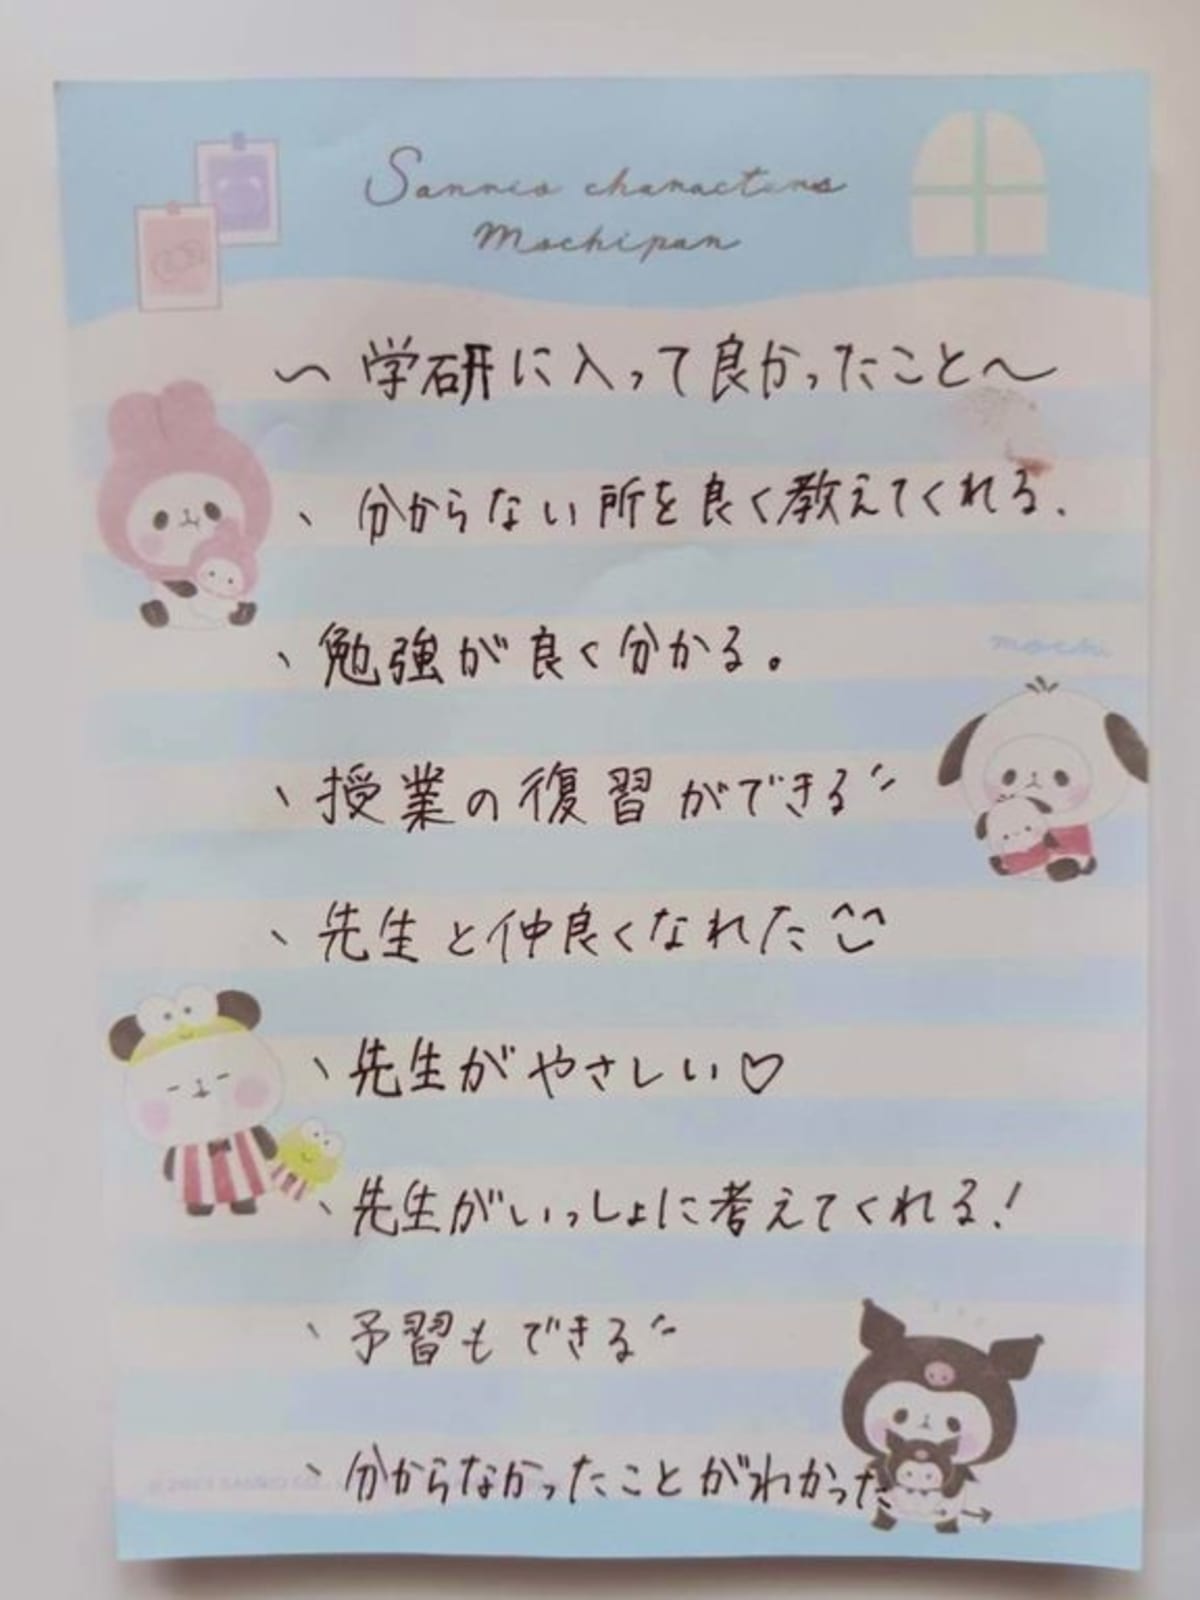 Sanrio characters
Mochipan
〜学研に入って良かったこと〜
、分からない所を良く教えてくれる、
、勉強が良く分かる。
mochi
、授業の復習ができる
、先生と仲良くなれた
、先生がやさしい♡
、先生がいっしょに考えてくれる!
、予習もできる
、分からなかったことがわかった